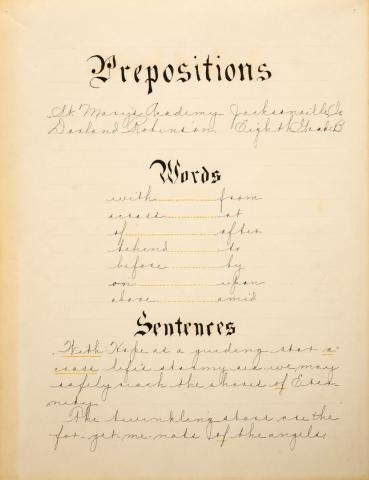 Prepositions
St. Mary's Academy Jacksonville, Ia
Dorland Robinson Eighth Grade B
Words
with from
across at
of after
behind to
before by
on upon
above amid
Sentences
With Hope as a guiding star a-
cross life's stormy sea we may
safely reach the shores of Eter-
nity.
The twinkling stars are the
for-get-me-nots of the angels.